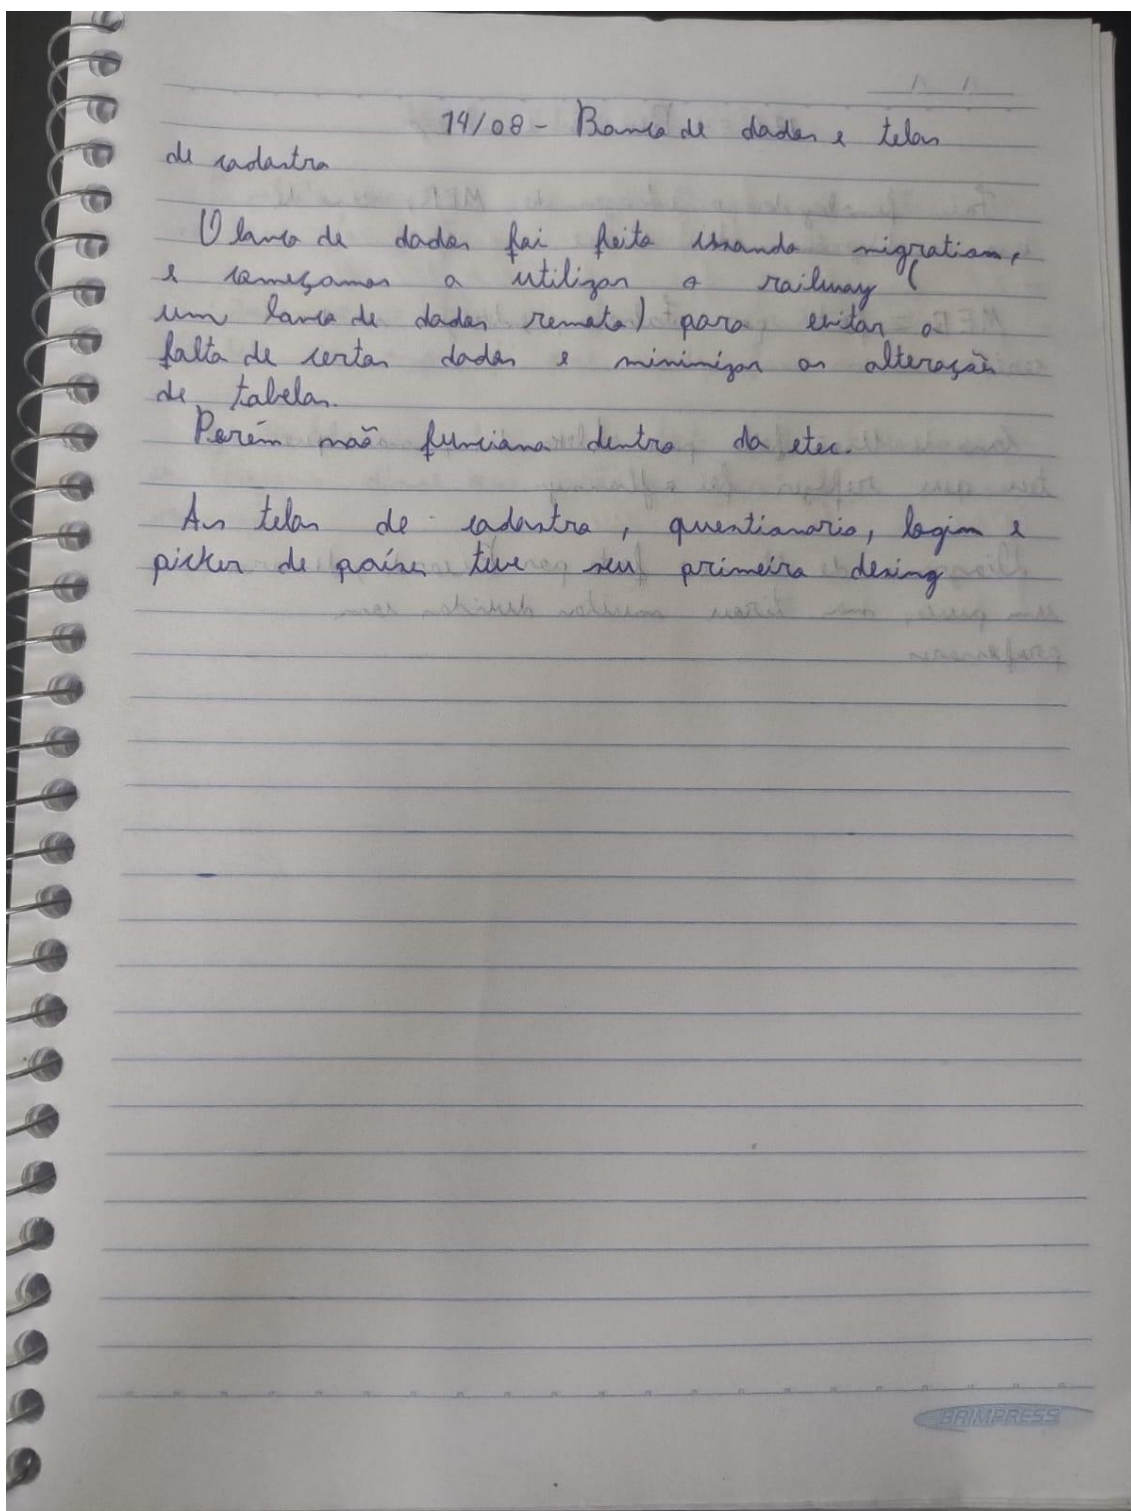 14/08 - Banco de dados e telas
de cadastro
O banco de dados foi feito usando migration,
e começamos a utilizar o railway (
um banco de dados remoto) para evitar a
falta de certos dados e minimizar as alteração
de tabelas.
Porém não funciona dentro da etec.
As telas de cadastro, questionario, login e
picker de países teve seu primeiro desing
BRIMPRESS